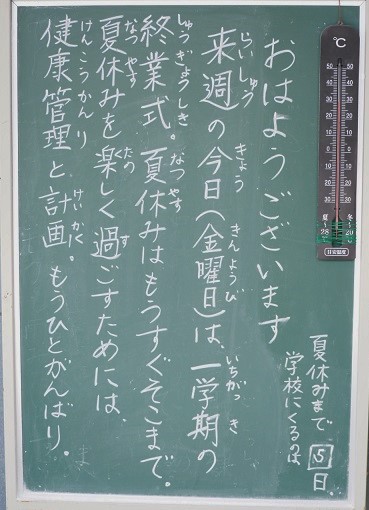 おはようございます
来週の今日(金曜日)は、一学期の
らいしゅう きょう きんようび いちがっき
終業式。夏休みはもうすぐそこまで。
しゅうぎょうしき なつやす
夏休みを楽しく過ごすためには、
なつやす たの す
健康管理と計画。もうひとがんばり。
けんこうかんり けいかく
夏休みまで
学校にくるのは
5日
℃
50 50
40 40
30 30
20 20
10 10
0 0
10 10
20 20
30 30
夏 冬
28 20
℃ ℃
目安温度